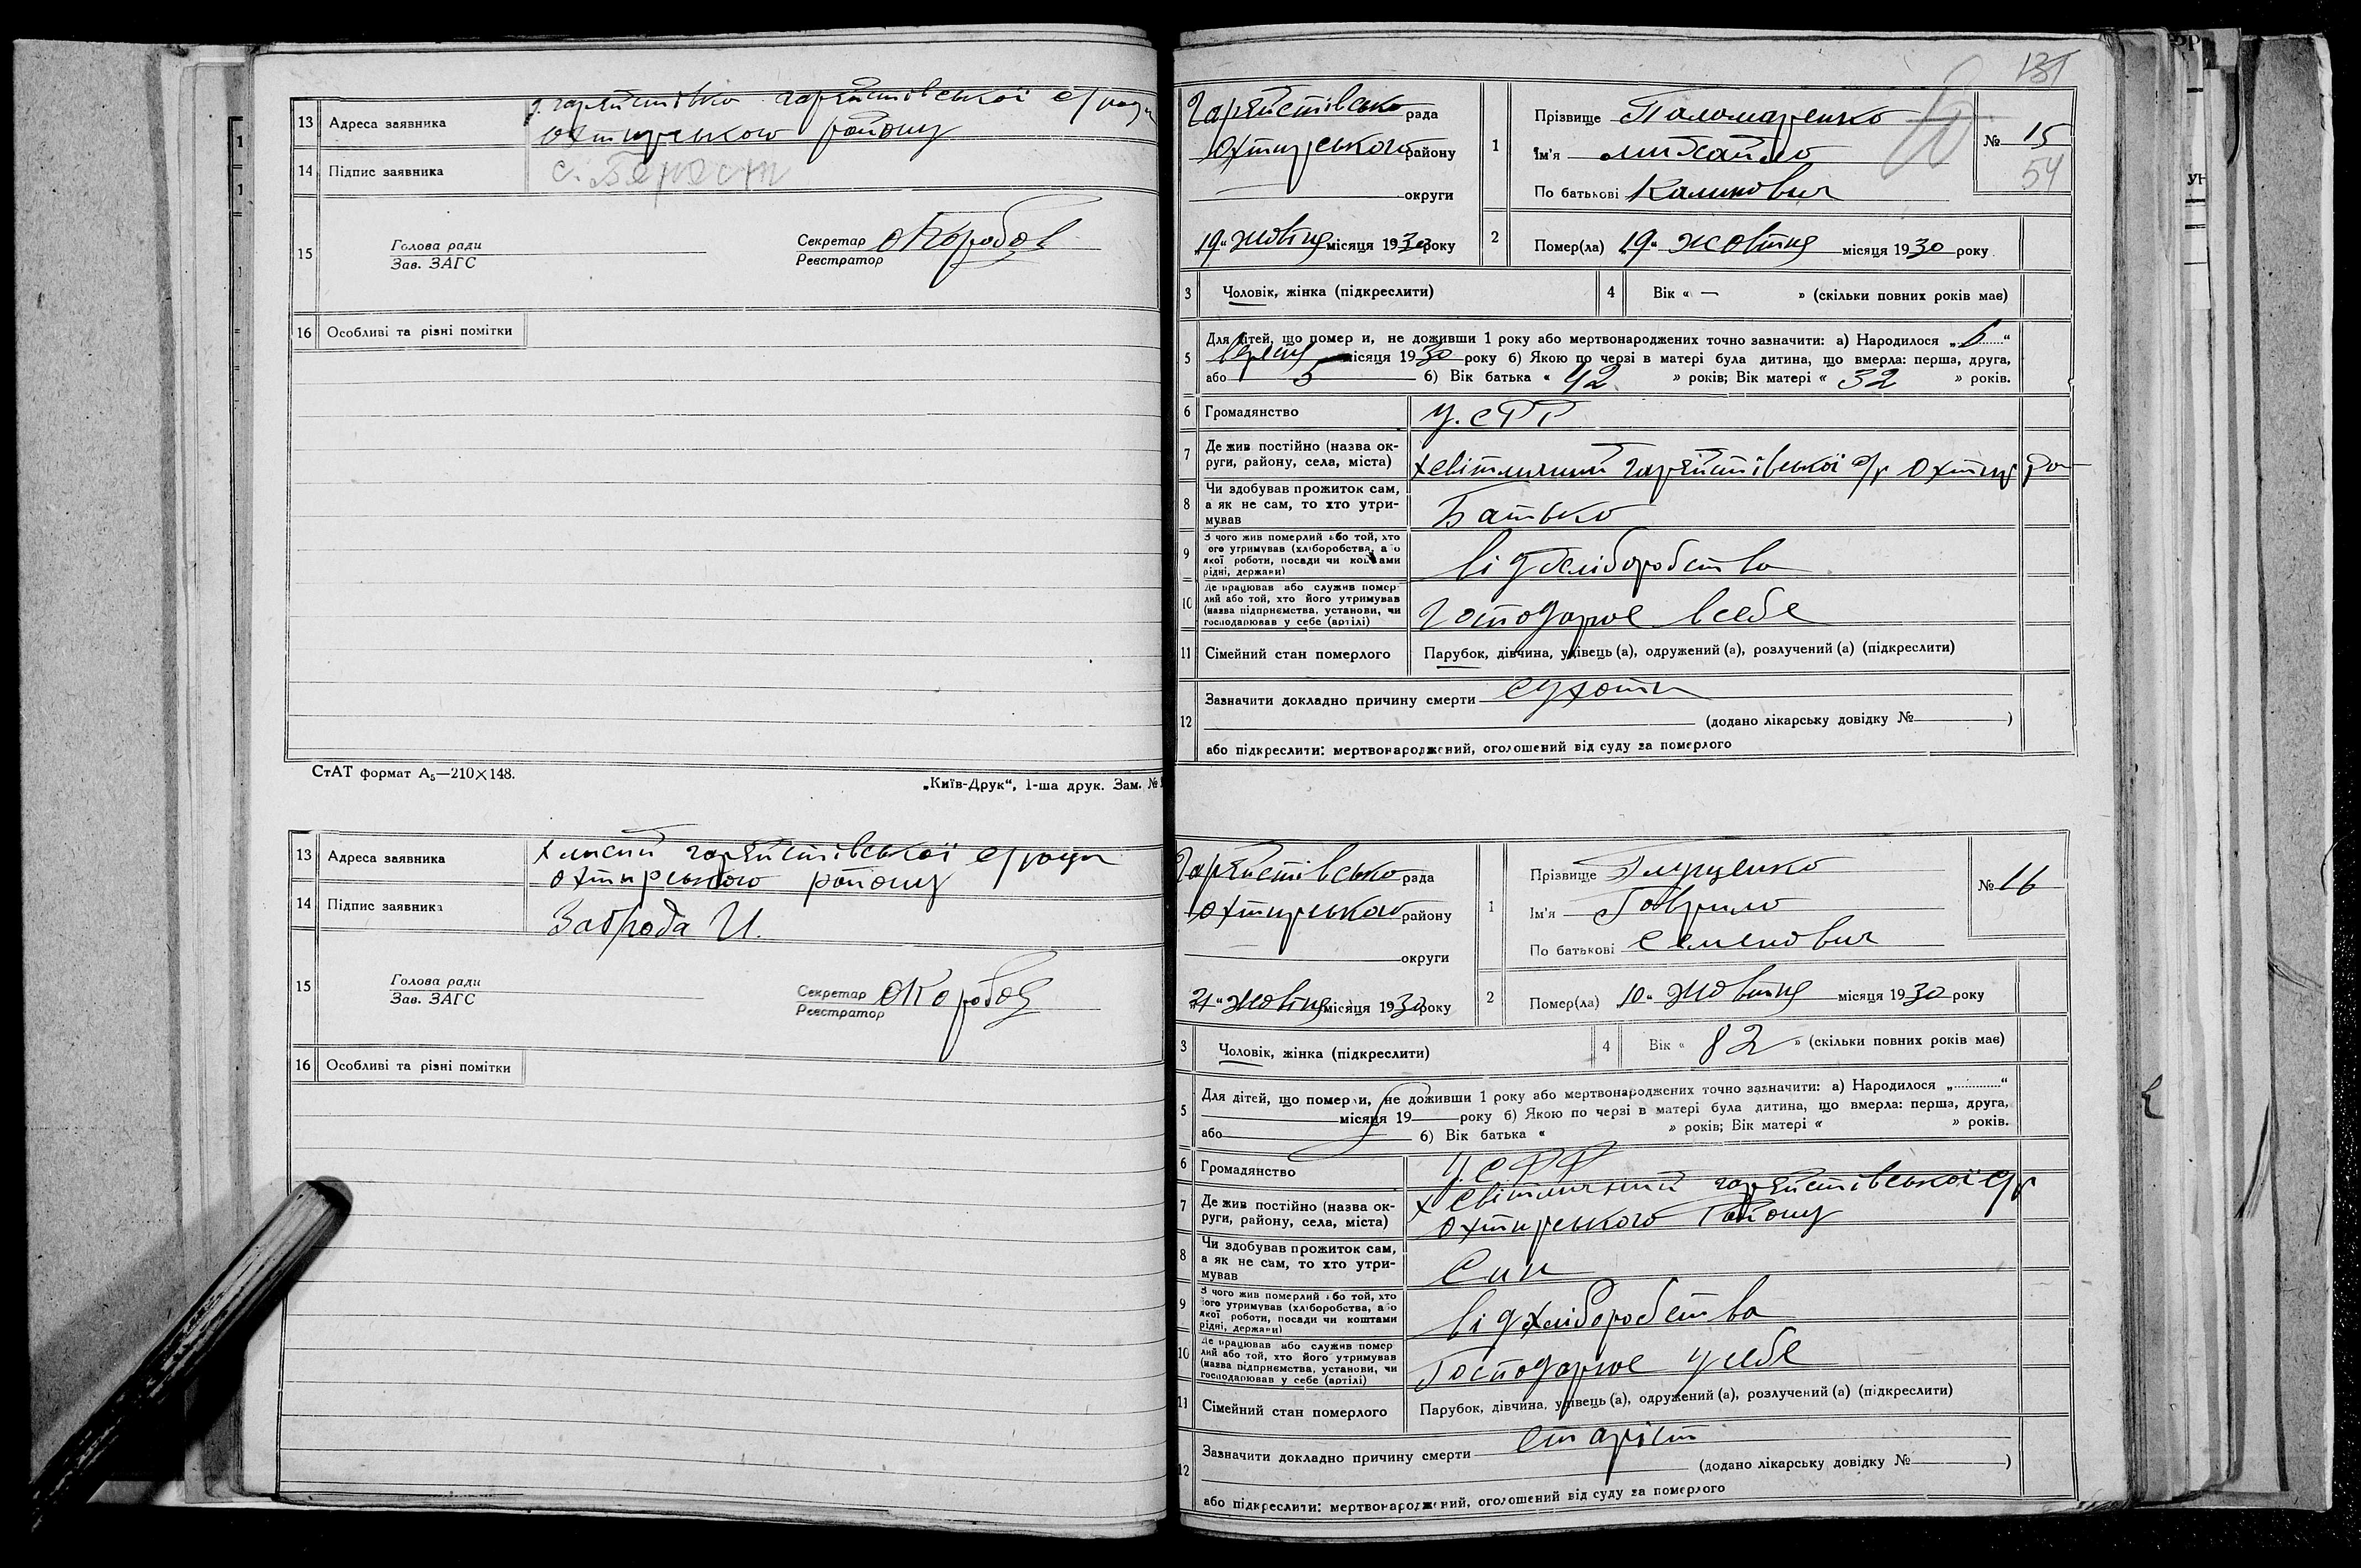 13 Адреса заявника
Охтирського району
14 Підпис заявника
15 Голова ради
Зав. ЗАГС
Секретар ОКоробов
Реєстратор
16 Особливі та різні помітки
СтАТ формат А₅—210×148.
„Київ-Друк“, 1-ша друк. Зам. №
13 Адреса заявника
Охтирського району
14 Підпис заявника Заброда И.
15 Голова ради
Зав. ЗАГС
Секретар ОКоробов
Реєстратор
16 Особливі та різні помітки
131
рада
Охтирського району
округи
„19“ жовтня місяця 1930 року
1 Прізвище Паламаренко
Ім'я Михайло
По батькові Калинович
№ 15
54
2 Помер(ла) „19“ жовтня місяця 1930 року
3 Чоловік, жінка (підкреслити)
4 Вік « — » (скільки повних років має)
5 Для дітей, що померли, не доживши 1 року або мертвонароджених точно зазначити: а) Народилося „6“
вересня місяця 1930 року б) Якою по черзі в матері була дитина, що вмерла: перша, друга,
або 5 б) Вік батька « 42 » років; Вік матері « 32 » років.
6 Громадянство У.СРР
7 Де жив постійно (назва округи, району, села, міста) х Світличний
8 Чи здобував прожиток сам,
а як не сам, то хто утримував Батько
9 З чого жив померлий або той, хто
його утримував (хліборобства, або
якої роботи, посади чи коштами
рідні, держави) від хліборобства
10 Де працював або служив померлий або той, хто його утримував
(назва підприємства, установи, чи
господарював у себе (артілі) Господарює в себе
11 Сімейний стан померлого Парубок, дівчина, удівець (а), одружений (а), розлучений (а) (підкреслити)
12 Зазначити докладно причину смерти Сухоти
(додано лікарську довідку № )
або підкреслити: мертвонароджений, оголошений від суду за померлого
рада
Охтирського району
округи
„21“ жовтня місяця 1930 року
1 Прізвище Глущенко
Ім'я Гаврило
По батькові Семенович
№ 16
2 Помер(ла) „10“ жовтня місяця 1930 року
3 Чоловік, жінка (підкреслити)
4 Вік « 82 » (скільки повних років має)
5 Для дітей, що померли, не доживши 1 року або мертвонароджених точно зазначити: а) Народилося „ “
місяця 19 року б) Якою по черзі в матері була дитина, що вмерла: перша, друга,
або б) Вік батька « » років; Вік матері « » років.
6 Громадянство У.СРР
7 Де жив постійно (назва округи, району, села, міста) х Світличний
Охтирського Району
8 Чи здобував прожиток сам,
а як не сам, то хто утримував Син
9 З чого жив померлий або той, хто
його утримував (хліборобства, або
якої роботи, посади чи коштами
рідні, держави) від хліборобства
10 Де працював або служив померлий або той, хто його утримував
(назва підприємства, установи, чи
господарював у себе (артілі) Господарює у себе
11 Сімейний стан померлого Парубок, дівчина, удівець (а), одружений (а), розлучений (а) (підкреслити)
12 Зазначити докладно причину смерти Старіст
(додано лікарську довідку № )
або підкреслити: мертвонароджений, оголошений від суду за померлого